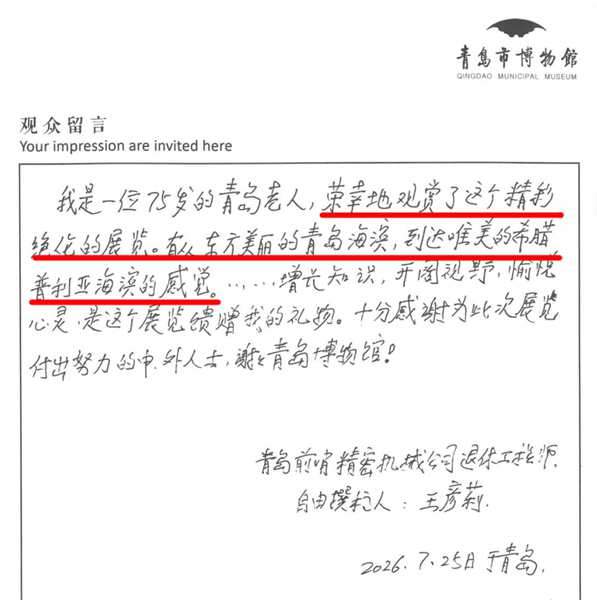 青岛市博物馆
QINGDAO MUNICIPAL MUSEUM
观众留言
Your impression are invited here
我是一位75岁的青岛老人,荣幸地观赏了这个精彩
绝伦的展览。有从东方美丽的青岛海滨,到达唯美的希腊
普利亚海滨的感觉。……增长知识,开阔视野,愉悦
心灵,是这个展览馈赠我的礼物。十分感谢为此次展览
付出努力的中.外人士,谢谢青岛博物馆!
青岛前哨精密机械公司退休工程师.
自由撰稿人:王彦莉.
2026.7.25日于青岛.